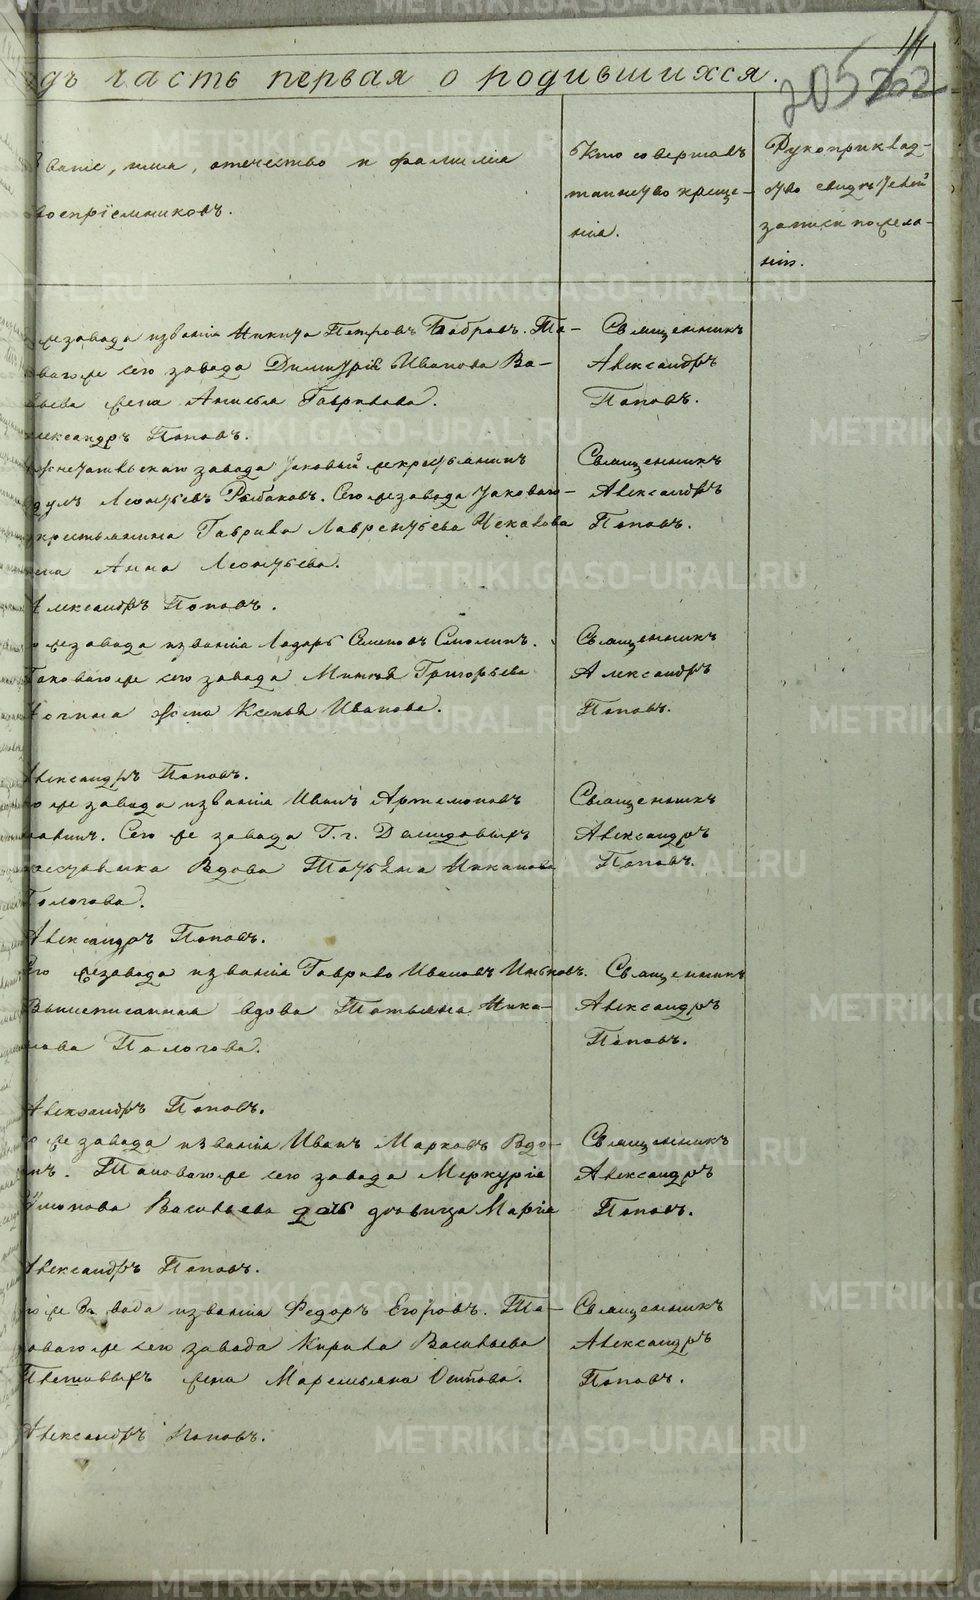 11
дъ часть первая о родившихся.
205 252
Званіе, имя, отечество и фамилія
воспріемниковъ.
Кто совершалъ
таинство креще-
нія.
Рукоприклад-
ство свидѣтелей
записи по жела-
нію.
жезавода изъ званія Никита Петровъ Бобровъ. Та-
коваго же сего завода Димитрій Иванова Ва-
жена Анисья Гаврилова.
Священникъ
Александръ
Поповъ.
Александръ Поповъ.
завода
Леонтьевъ Рыбаковъ. Сего жезавода
крестьянина Гаврила Лаврентьева Чекалова
жена Анна Леонтьева.
Священникъ
Александръ
Поповъ.
Александръ Поповъ.
жезавода изъ званія Лазарь Семеновъ Смолинъ.
Таковаго же сего завода Григорьева
жена Ксенья Иванова.
Священникъ
Александръ
Поповъ.
Александръ Поповъ.
же завода изъ званія Иванъ Артемоновъ
Сего же завода Г.г. Демидовыхъ
Вдова Татьяна Никанова
Пологова.
Священникъ
Александръ
Поповъ.
Александръ Поповъ.
Сего жезавода изъ званія Гаврило Ивановъ
Вышеписанная вдова Татьяна Ника-
нова Пологова.
Священникъ
Александръ
Поповъ.
Александръ Поповъ.
же завода изъ званія Иванъ Марковъ Вдо-
инъ. Таковаго же сего завода Меркурія
Васильева дочь дѣвица Марія
Священникъ
Александръ
Поповъ.
Александръ Поповъ.
же завода изъ званія Федоръ Егоровъ. Та-
коваго же сего завода Кирила Васильева
жена Маремьяна Осипова.
Священникъ
Александръ
Поповъ.
Александръ Поповъ.
METRIKI.GASO-URAL.RU